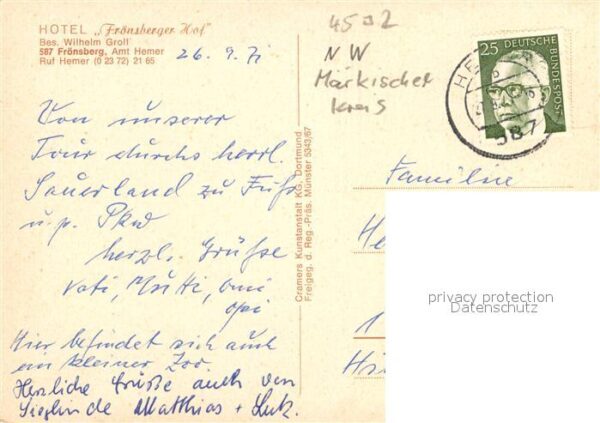 HOTEL „Frönsberger Hof"
Bes. Wilhelm Groll
587 Frönsberg, Amt Hemer
Ruf Hemer (0 23 72) 21 65
26. 9. 71
Von unserer
Tour durchs herrl.
Sauerland zu Fuß
u. p. Pkw
herzl. Grüße
Vati, Mutti, Omi
Opi
Hier befindet sich auch
ein kleiner Zoo.
Herzliche Grüße auch von
Sieglinde Matthias + Lutz.
Cramers Kunstanstalt KG, Dortmund
Freigeg. d. Reg.-Präs. Münster 5343/67
NW
Märkischer
Kreis
25 DEUTSCHE
BUNDESPOST
587
Familie
He
1
Hi
privacy protection
Datenschutz